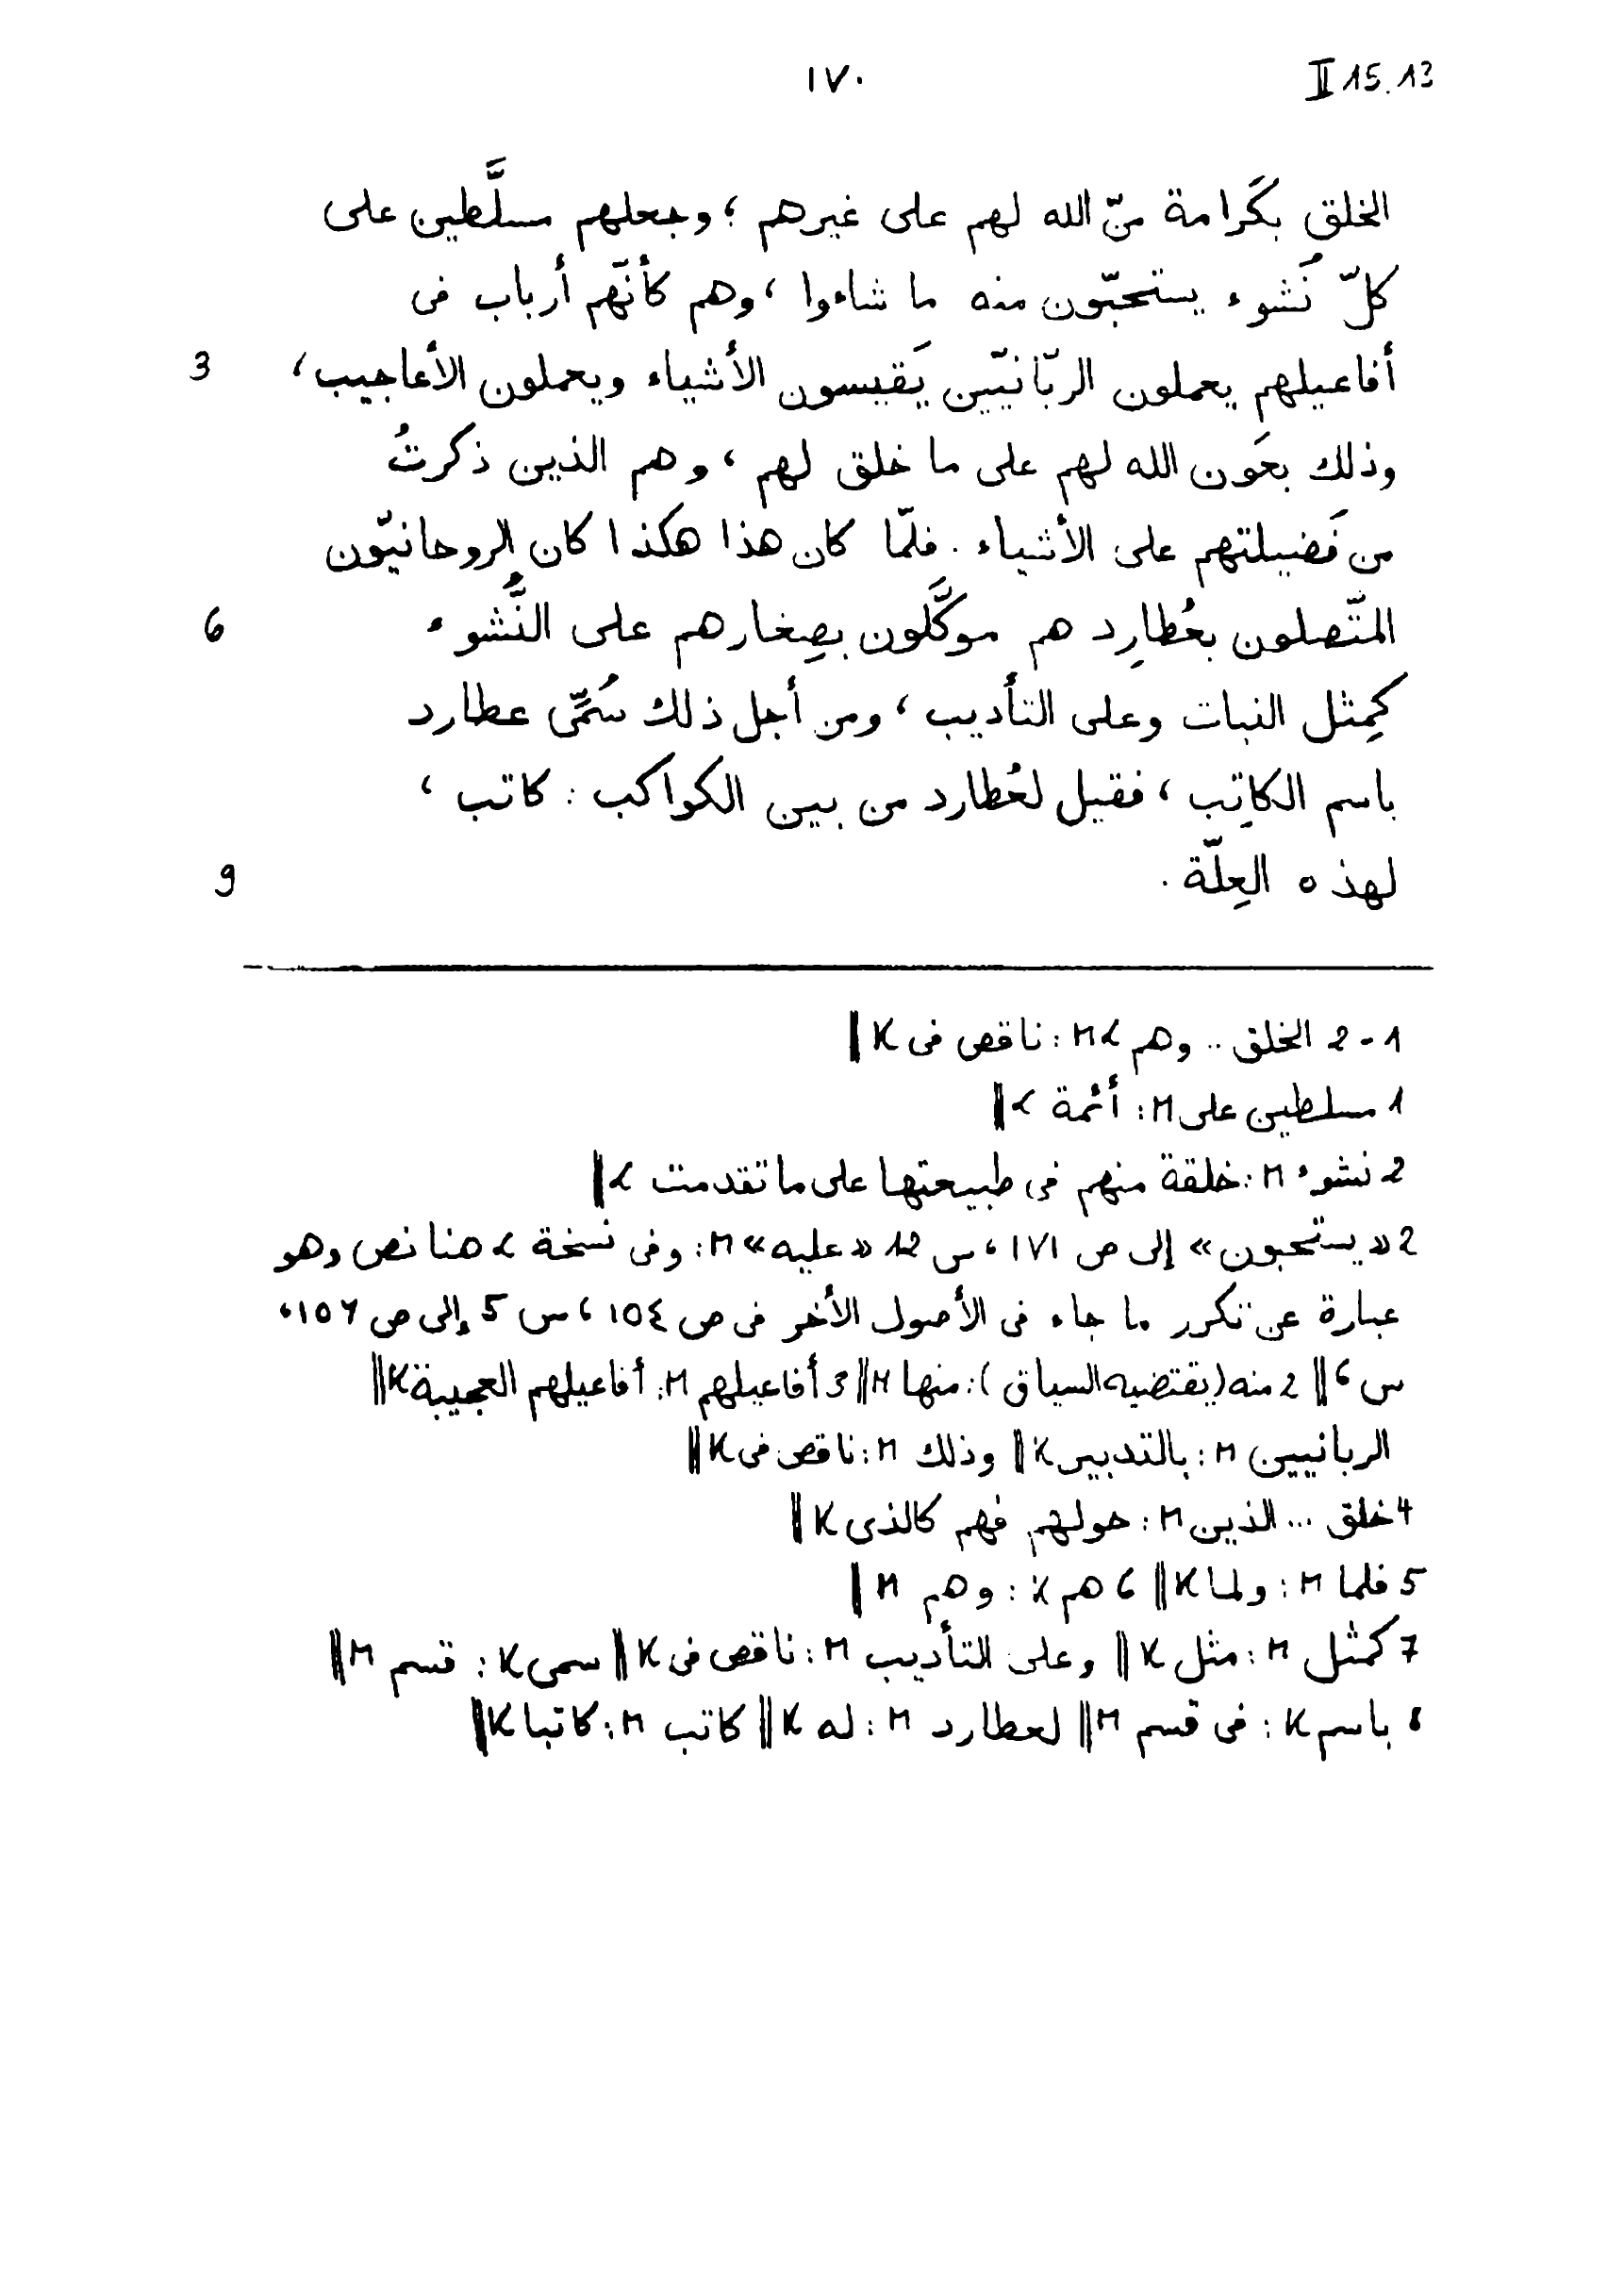 II 15.13
١٧٠
الخلق بكَرامة مَنّ الله لهم على غيرهم ؛ وجعلهم مسلَّطين على
كلّ نُشوء يستحبّون منه ما شاءوا ، وهم كأنّهم أرباب فى
أفاعيلهم يعملون الربّانيّين يَقيسون الأشياء ويعملون الأعاجيب ، 3
وذلك بعَون الله لهم على ما خلق لهم ، وهم الذين ذكرتُ
من فَضيلتهم على الأشياء . فلمّا كان هذا هكذا كان الروحانيّون
المتّصلون بعُطارِد هم موكَّلون بصِغارهم على النُّشوء 6
كمِثل النبات وعلى التأديب ، ومن أجل ذلك سُمِّى عطارد
باسم الكاتِب ، فقيل لعُطارد من بين الكواكب : كاتب ،
لهذه العِلّة . 9
1 - 2 الخلق .. وهم M L : ناقص فى K ‖
1 مسلطين على M : أئمة L ‖
2 نشوء M : خلقة منهم فى طبيعتها على ما تقدمت L ‖
2 «يستحبون» إلى ص ١٧١ ، س 12 «عليه» M : وفى نسخة L هنا نص وهو
عبارة عن تكرر ما جاء فى الأصول الأخر فى ص ١٥٤ ، س 5 إلى ص ١٥٦ ،
س 6 ‖ 2 منه (يقتضيه السياق) : منها M ‖ 3 أفاعيلهم M : أفاعيلهم العجيبة K ‖
الربانيين M : بالتدبير K ‖ وذلك M : ناقص فى K ‖
4 خلق ... الذين M : حولهم فهم كالذى K ‖
5 فلما M : ولما K ‖ 6 هم K : وهم M ‖
7 كمثل M : مثل K ‖ وعلى التأديب M : ناقص فى K ‖ سمى K : قسم M ‖
8 باسم K : فى قسم M ‖ لعطارد M : له K ‖ كاتب M : كاتبا K ‖